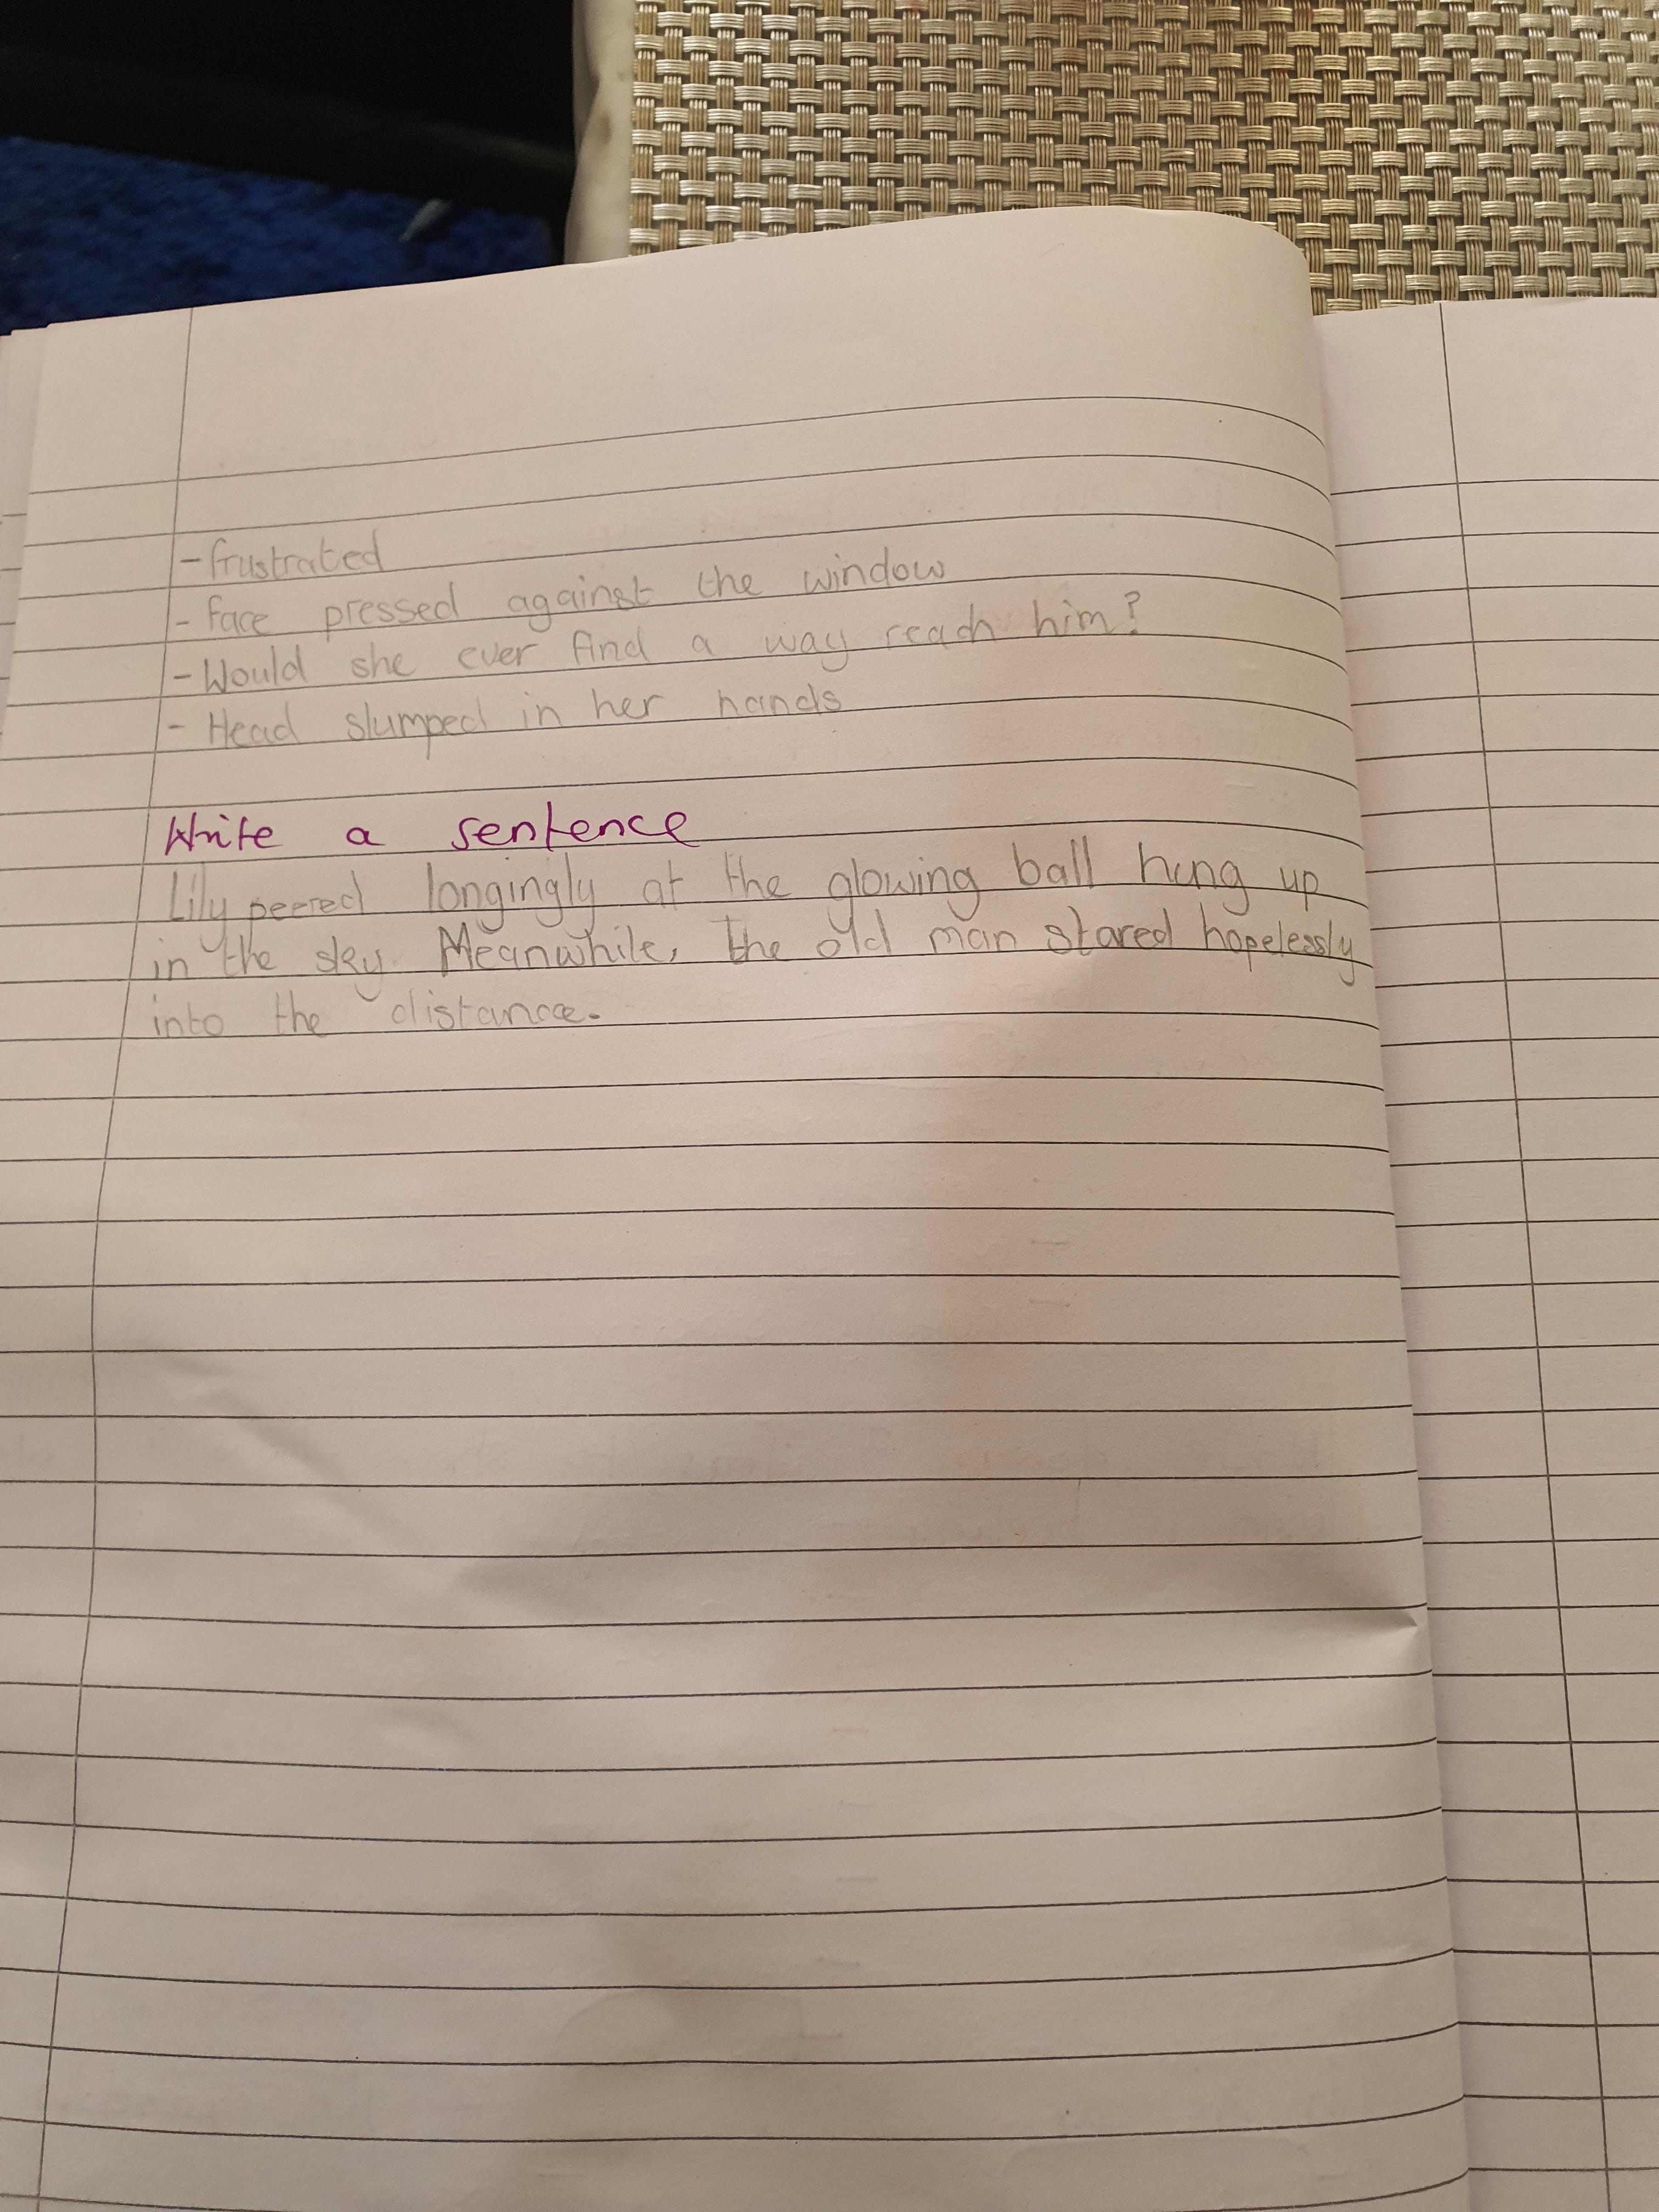 - frustrated
- face pressed against the window
- Would she ever find a way reach him?
- Head slumped in her hands
Write a sentence
Lily peered longingly at the glowing ball hung up
in the sky. Meanwhile, the old man stared hopelessly
into the distance.